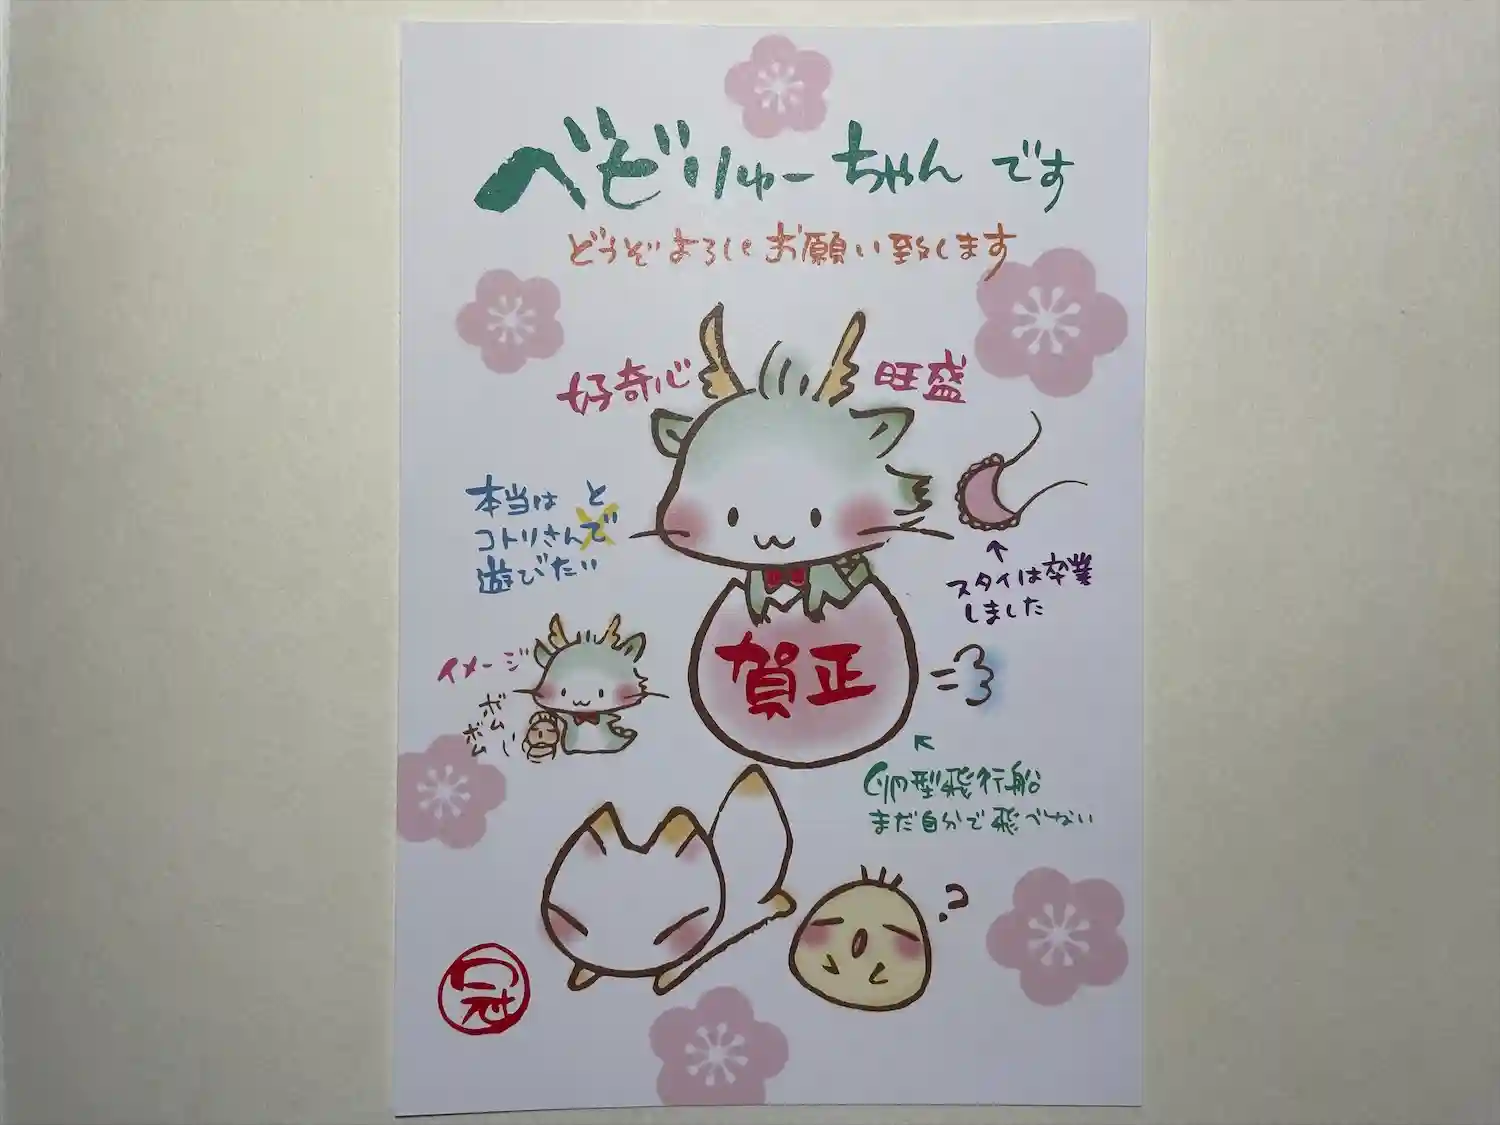 べびりゅーちゃんです
どうぞよろしくお願い致します
好奇心 旺盛
本当は と
コトリさんで
遊びたい
スタイは卒業
しました
イメージ
ボム
ボム
賀正
卵型飛行船
まだ自分で飛べない
?